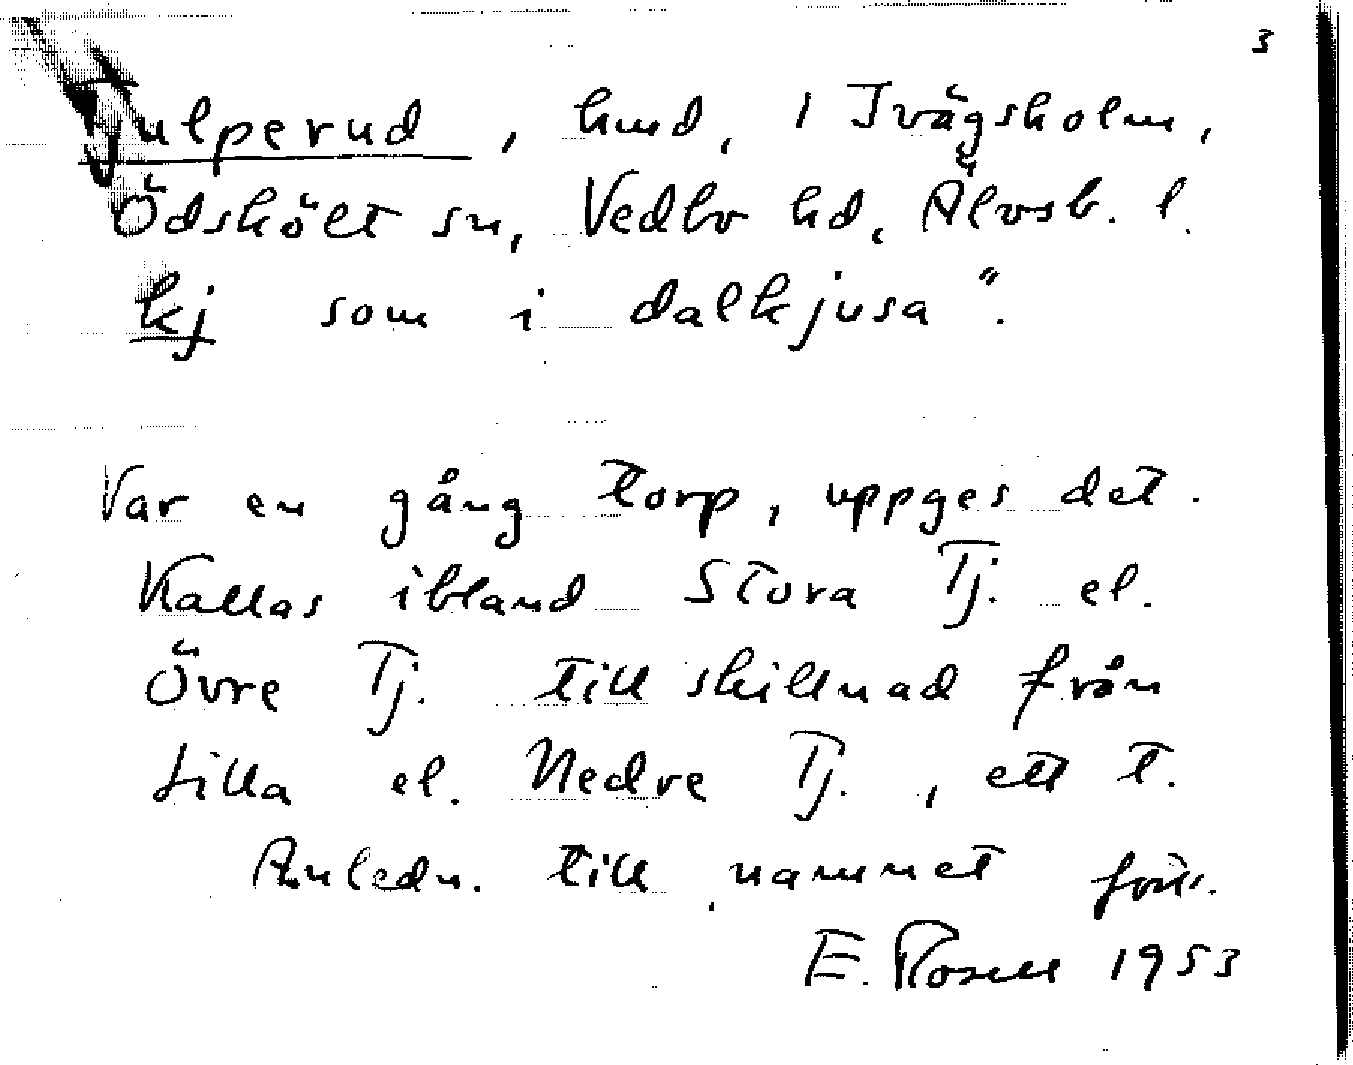 3
Tjulperud, hmd, i Tvägsholm,
Ödskölt sn, Vedbo hd, Älvsb. l.
kj som i dalkjusa".
Var en gång torp, uppges det.
Kallas ibland Stora Tj. el.
Övre Tj. till skillnad från
Lilla el. Nedre Tj., ett t.
Anledn. till namnet
E. Rosell 1953